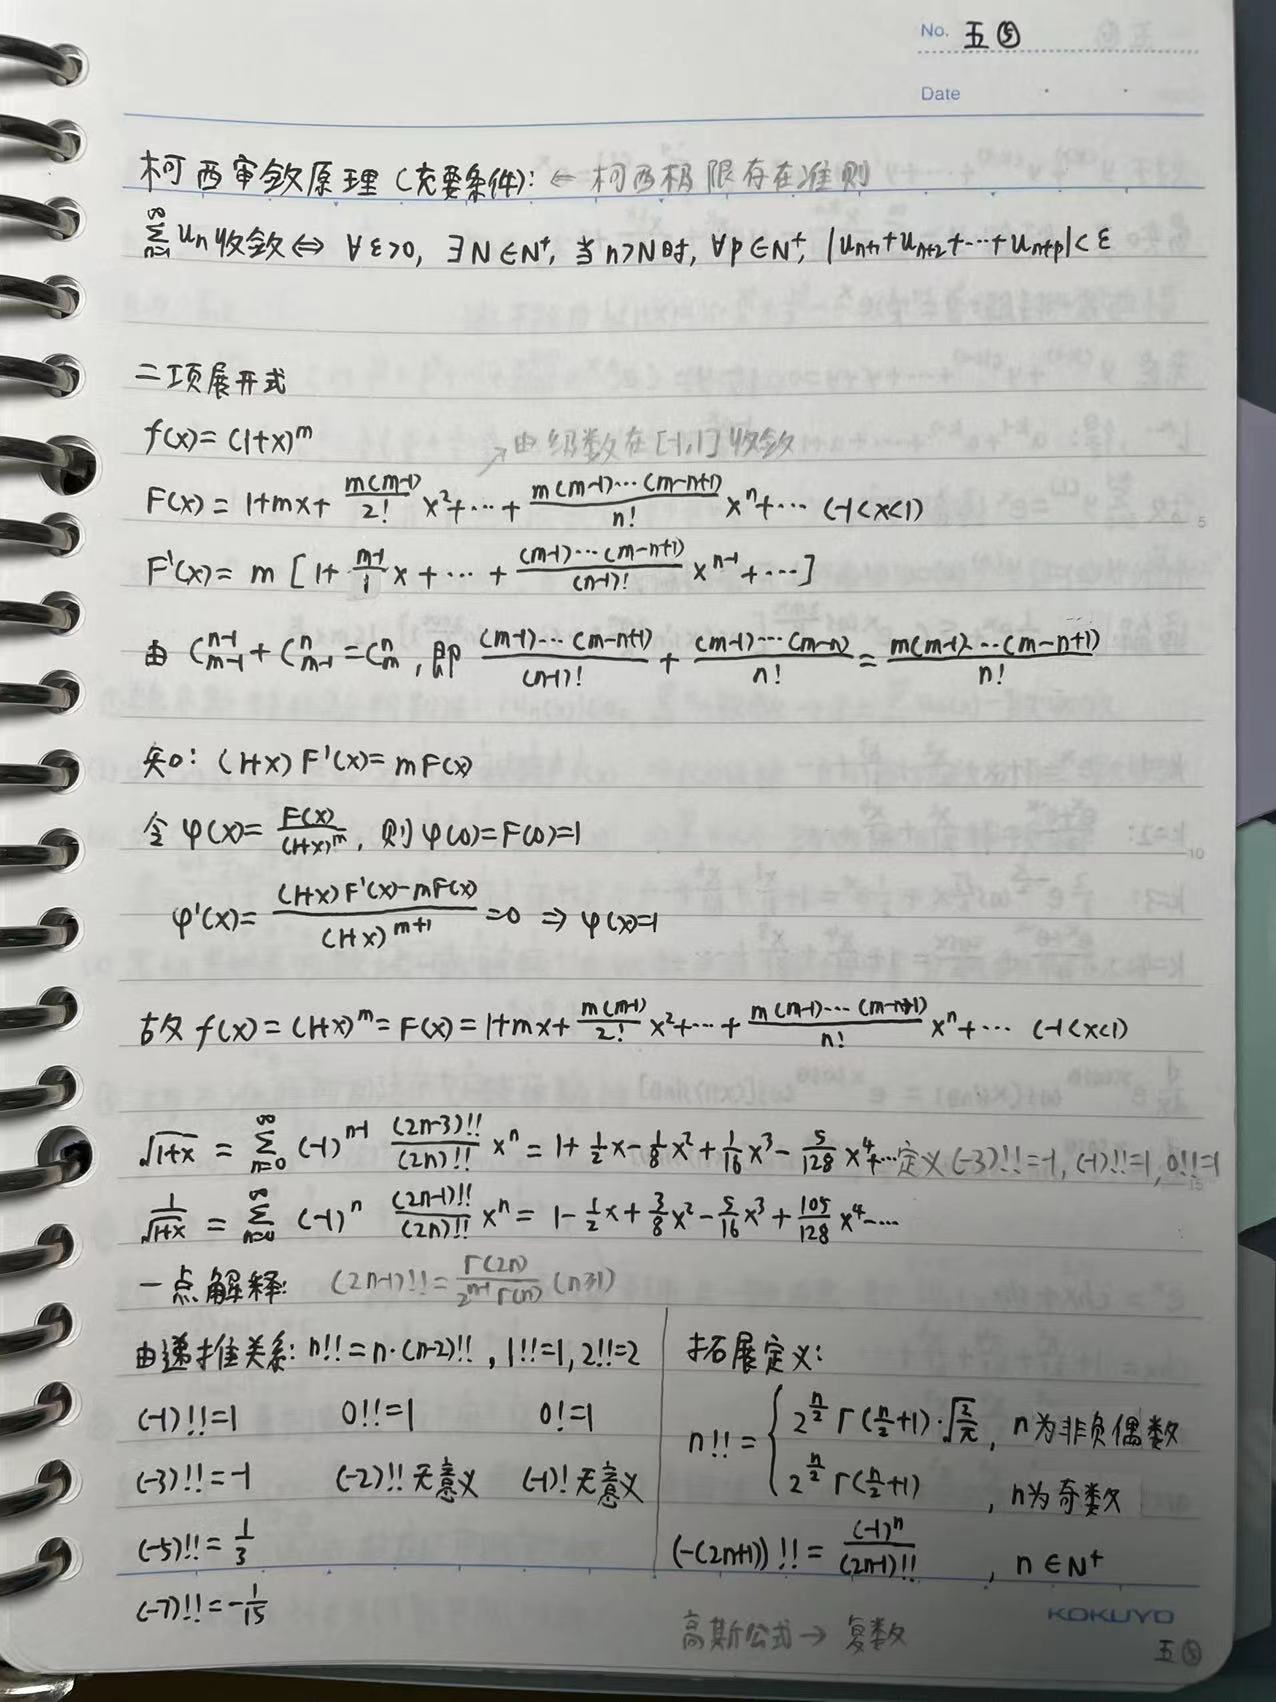 No. 五⑤
Date
柯西审敛原理(充要条件): ← 柯西极限存在准则
∑_{n=1}^{∞} u_n 收敛 ⇔ ∀ε>0, ∃N∈N⁺, 当n>N时, ∀p∈N⁺, |u_{n+1}+u_{n+2}+⋯+u_{n+p}|<ε
二项展开式
f(x)=(1+x)^m
↗由级数在[-1,1]收敛
F(x)=1+mx+\frac{m(m-1)}{2!}x²+⋯+\frac{m(m-1)⋯(m-n+1)}{n!}x^n+⋯ (-1<x<1)
5
F'(x)=m[1+\frac{m-1}{1}x+⋯+\frac{(m-1)⋯(m-n+1)}{(n-1)!}x^{n-1}+⋯]
由 C_{m-1}^{n-1}+C_{m-1}^{n}=C_m^n, 即 \frac{(m-1)⋯(m-n+1)}{(n-1)!}+\frac{(m-1)⋯(m-n)}{n!}=\frac{m(m-1)⋯(m-n+1)}{n!}
知: (1+x)F'(x)=mF(x)
令 φ(x)=\frac{F(x)}{(1+x)^m}, 则 φ(0)=F(0)=1
10
φ'(x)=\frac{(1+x)F'(x)-mF(x)}{(1+x)^{m+1}}=0 ⇒ φ(x)=1
故 f(x)=(1+x)^m=F(x)=1+mx+\frac{m(m-1)}{2!}x²+⋯+\frac{m(m-1)⋯(m-n+1)}{n!}x^n+⋯ (-1<x<1)
√(1+x) = ∑_{n=0}^{∞} (-1)^{n-1} \frac{(2n-3)!!}{(2n)!!} x^n = 1+\frac{1}{2}x-\frac{1}{8}x²+\frac{1}{16}x³-\frac{5}{128}x⁴+⋯ 定义(-3)!!=-1, (-1)!!=1, 0!!=1
15
\frac{1}{√(1+x)} = ∑_{n=0}^{∞} (-1)^n \frac{(2n-1)!!}{(2n)!!} x^n = 1-\frac{1}{2}x+\frac{3}{8}x²-\frac{5}{16}x³+\frac{105}{128}x⁴-⋯
一点解释: (2n-1)!!=\frac{Γ(2n)}{2^{n-1}Γ(n)} (n≥1)
由递推关系: n!!=n·(n-2)!!, 1!!=1, 2!!=2
(-1)!!=1 0!!=1 0!=1
(-3)!!=-1 (-2)!!无意义 (-1)!无意义
(-5)!!=\frac{1}{3}
(-7)!!=-\frac{1}{15}
拓展定义:
n!!={ 2^{\frac{n}{2}}Γ(\frac{n}{2}+1)·√\frac{2}{π}, n为非负偶数
2^{\frac{n}{2}}Γ(\frac{n}{2}+1), n为奇数
(-(2n+1))!!=\frac{(-1)^n}{(2n-1)!!}, n∈N⁺
高斯公式→复数
KOKUYO
五⑤